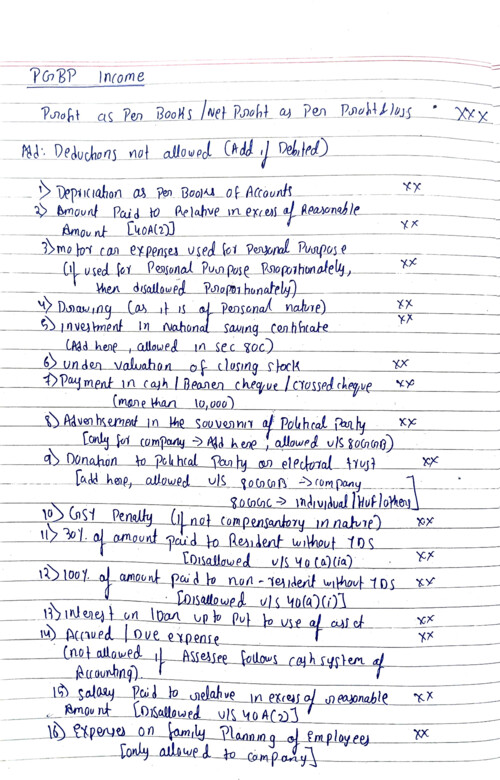 PGBP Income
Profit as Per Books / Net Profit as Per Profit & loss • XXX
Add: Deductions not allowed (Add if Debited)
1) Depriciation as Per Books of Accounts XX
2) Amount Paid to Relative in excess of Reasonable
Amount [40A(2)] XX
3) motor car expenses used for Personal Purpose
(if used for Personal Purpose Proportionately, XX
then disallowed Proportionately)
4) Drawing (as it is of Personal nature) XX
5) investment in National saving certificate XX
(Add here, allowed in sec 80C)
6) under valuation of closing stock XX
7) Payment in cash / Bearer cheque / crossed cheque XX
(more than 10,000)
8) Advertisement in the souvernir of Political Party XX
[only for company → Add here, allowed U/S 80GGB)
9) Donation to Political Party or electoral trust XX
[add here, allowed U/S 80GGB → company
80GGC → individual / HUF / others]
10) GST Penalty (if not compensantory in nature) XX
11) 30% of amount paid to Resident without TDS
[Disallowed U/S 40(a)(ia) XX
12) 100% of amount paid to non-resident without TDS XX
[Disallowed U/S 40(a)(i)]
13) interest on loan up to Put to use of asset XX
14) Accrued / Due expense XX
(not allowed if Assessee follows cash system of
Accounting).
15) salary Paid to relative in excess of reasonable XX
Amount [Disallowed U/S 40A(2)]
16) Expenses on family Planning of Employees XX
[only allowed to company]